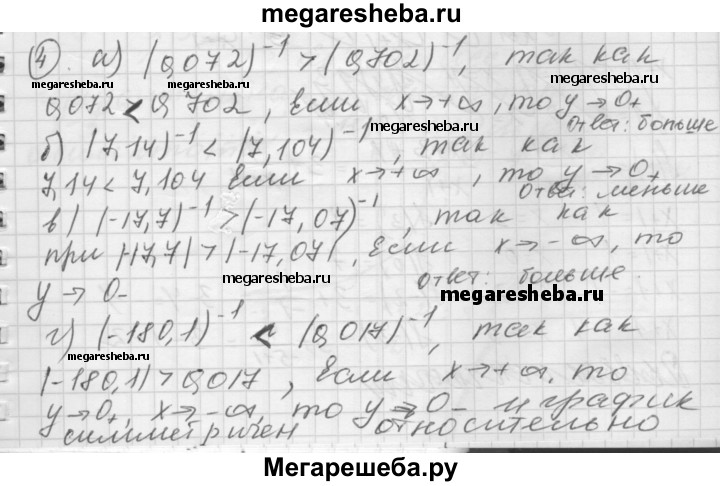 megaresheba.ru
④. а) (0,072)⁻¹ > (0,702)⁻¹, так как
megaresheba.ru megaresheba.ru
0,072 < 0,702, Если x→+∞, то y→0₊
megaresheba.ru ответ: больше
б) (7,14)⁻¹ < (7,104)⁻¹, так как
7,14 < 7,104 Если x→+∞, то y→0₊
ответ: меньше
в) (-17,7)⁻¹ > (-17,07)⁻¹, так как
при |-17,7| > |-17,07|, Если x→-∞, то
megaresheba.ru ответ: больше.
y→0₋ megaresheba.ru
г) (-180,1)⁻¹ < (0,017)⁻¹, так как
megaresheba.ru
|-180,1| > 0,017, Если x→+∞, то
y→0₊, x→-∞, то y→0₋ и график
симметричен относительно
Мегарешеба.ру